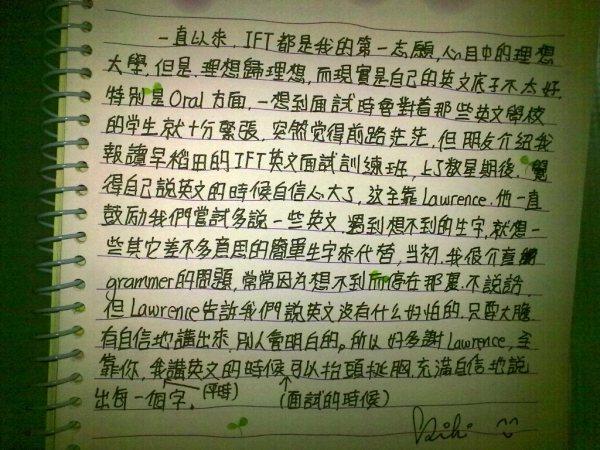 一直以來，IFT都是我的第一志願，心目中的理想
大學，但是，理想歸理想，而現實是自己的英文底子不太好，
特別是Oral方面，一想到面試時會對着那些英文學校
的学生就十分緊張，突然觉得前路茫茫，但朋友介紹我
報讀早稻田的IFT英文面試訓練班，上了数星期後，覺
得自己說英文的時候自信心大了，这全靠Lawrence，他一直
鼓励我們嘗試多說一些英文，遇到想不到的生字，就想一
些其它差不多意思的簡單生字來代替，當初，我很介意
grammer的問題，常常因为想不到而停在那裏，不說話，
但Lawrence告訴我們說英文沒有什么好怕的，只要大膽
有自信地講出來，別人會明白的。所以好多謝Lawrence，全
靠你，我講英文的時候可以抬頭挺胸，充滿自信地說
出每一個字。(平時) (面試的時候)
Kiki